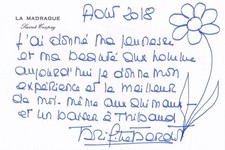 Août 2018
LA MADRAGUE
Saint Tropez
J'ai donné ma jeunesse
et ma beauté aux hommes
aujourd'hui je donne mon
expérience et le meilleur
de moi-même aux animaux
et un baiser à Thibaud
Brigitte Bardot